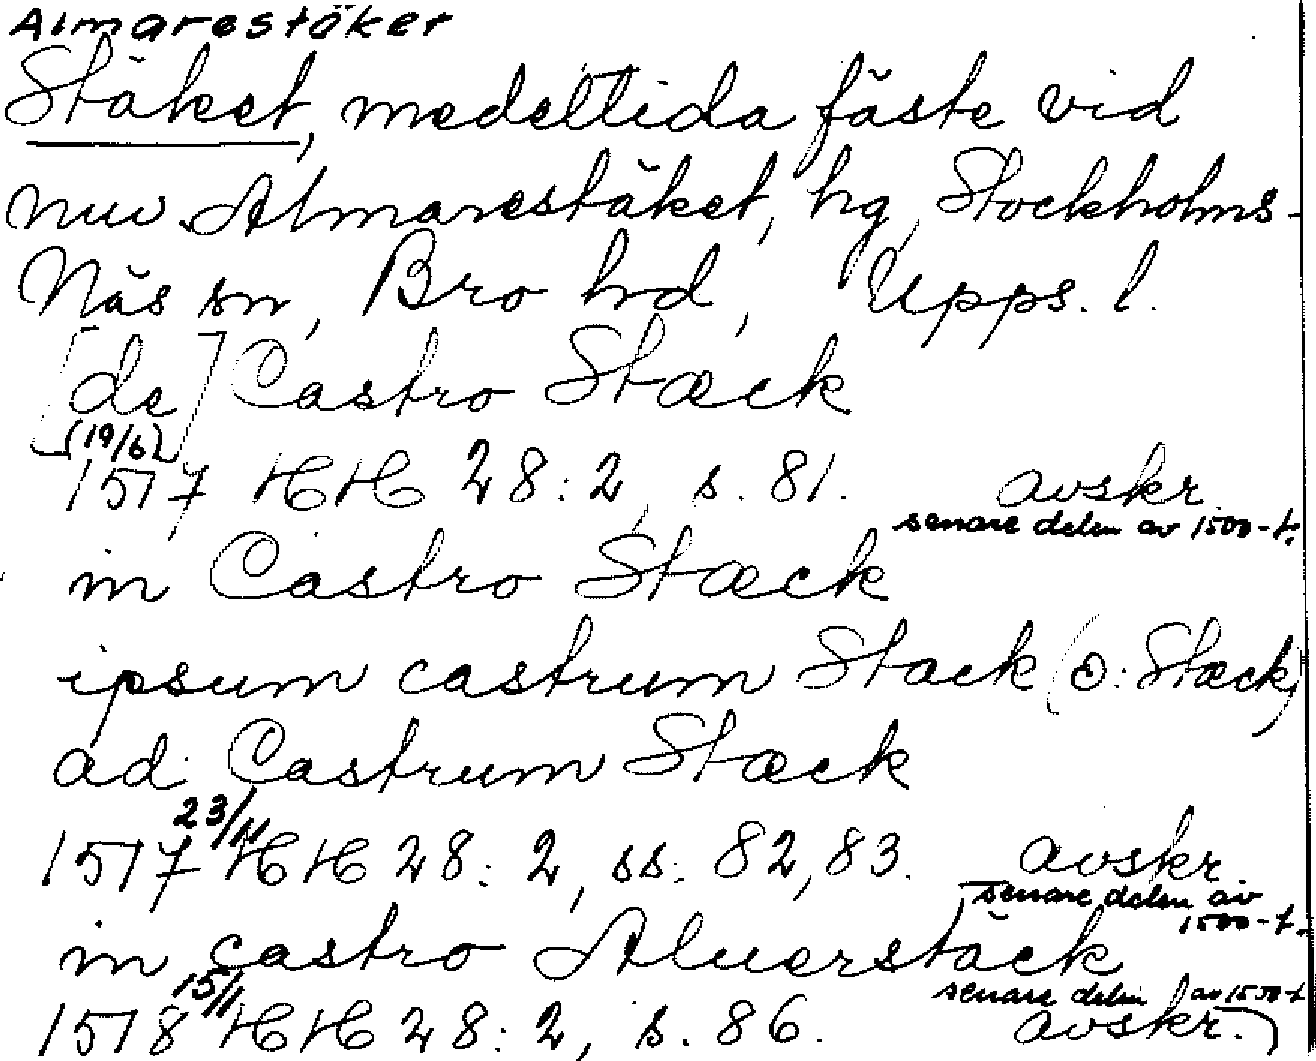 Almarestäket
Stäket, medeltida fäste vid
nuv. Almarestäket, hg, Stockholms-
Näs sn, Bro hd, Upps. l.
[de] Castro Stæck
(19/6)
1517 HH 28:2, s. 81. avskr.
senare delen av 1500-t.
in Castro Stæck
ipsum castrum Stack (ɔ: Stæck)
ad Castrum Stæck
23/11
1517 HH 28:2, ss. 82, 83. avskr.
senare delen av
1500-t.
in castro Aluerstäck
15/1 senare delen av 1500-t
1518 HH 28:2, s. 86. avskr.